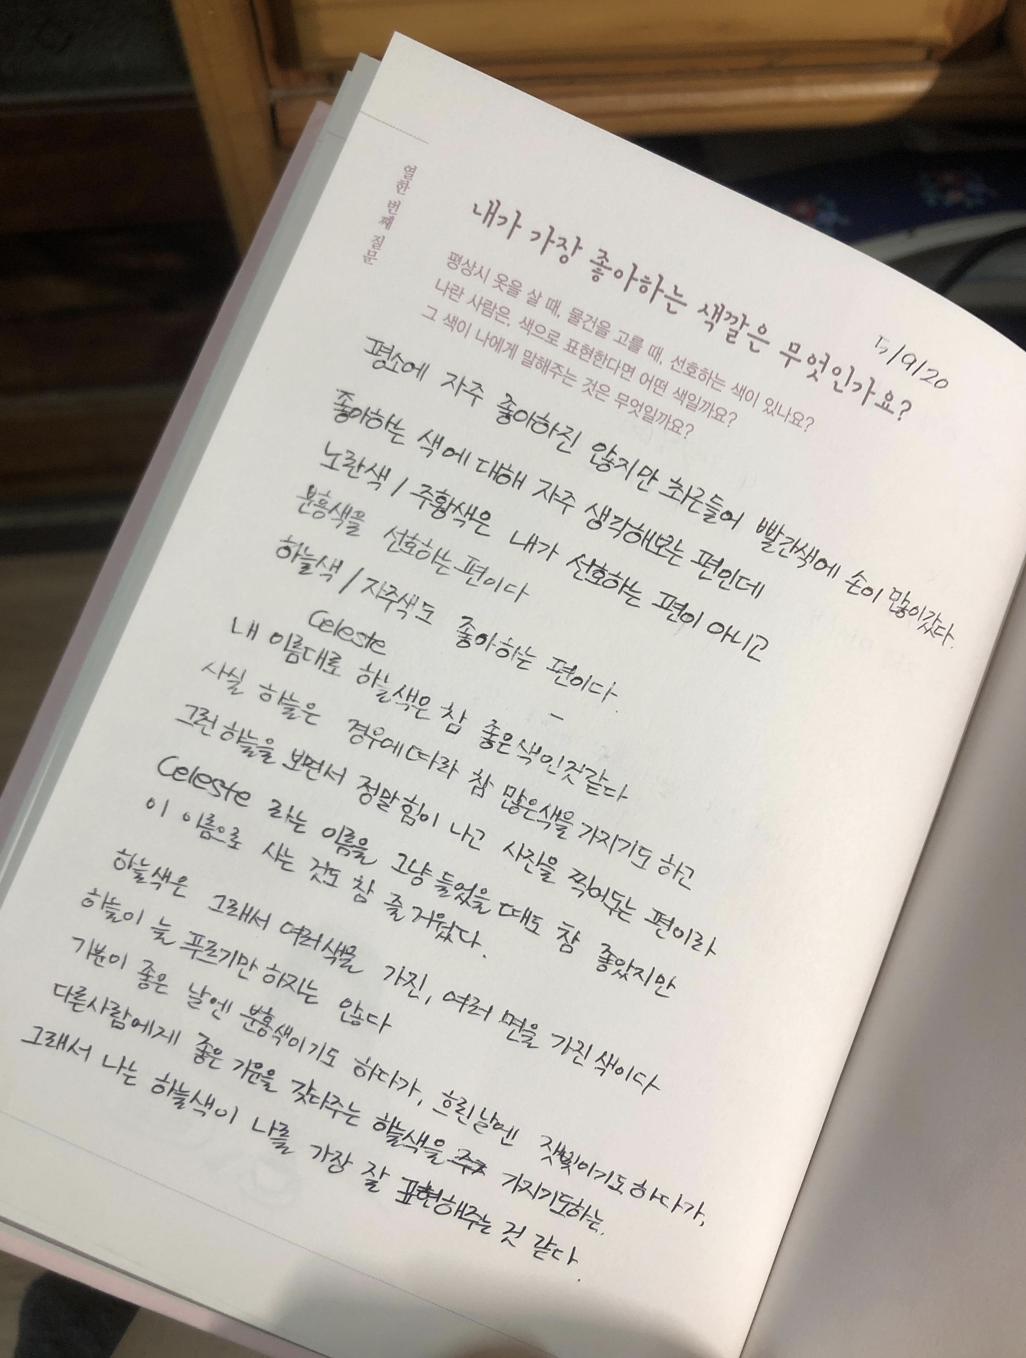 열한 번째 질문
내가 가장 좋아하는 색깔은 무엇인가요?
평상시 옷을 살 때, 물건을 고를 때, 선호하는 색이 있나요?
나란 사람은, 색으로 표현한다면 어떤 색일까요?
그 색이 나에게 말해주는 것은 무엇일까요?
5/9/20
평소에 자주 좋아하진 않지만 최근들어 빨간색에 손이 많이갔다.
좋아하는 색에 대해 자주 생각해보는 편인데
노란색 / 주황색은 내가 선호하는 편이 아니고
분홍색을 선호하는 편이다
하늘색 / 자주색도 좋아하는 편이다.
Celeste
내 이름대로 하늘색은 참 좋은색인것같다
사실 하늘은 경우에따라 참 많은색을 가지기도 하고
그런 하늘을 보면서 정말힘이 나고 사진을 찍어두는 편이라
Celeste 라는 이름을 그냥 들었을 때도 참 좋았지만
이 이름으로 사는 것도 참 즐거웠다.
하늘색은 그래서 여러색을 가진, 여러 면을 가진 색이다
하늘이 늘 푸르기만 하지는 않다
기분이 좋은 날엔 분홍색이기도 하다가, 흐린날엔 잿빛이기도하다가,
다른사람에게 좋은 기운을 갖다주는 하늘색을 가지기도하는.
그래서 나는 하늘색이 나를 가장 잘 표현해주는 것 같다.